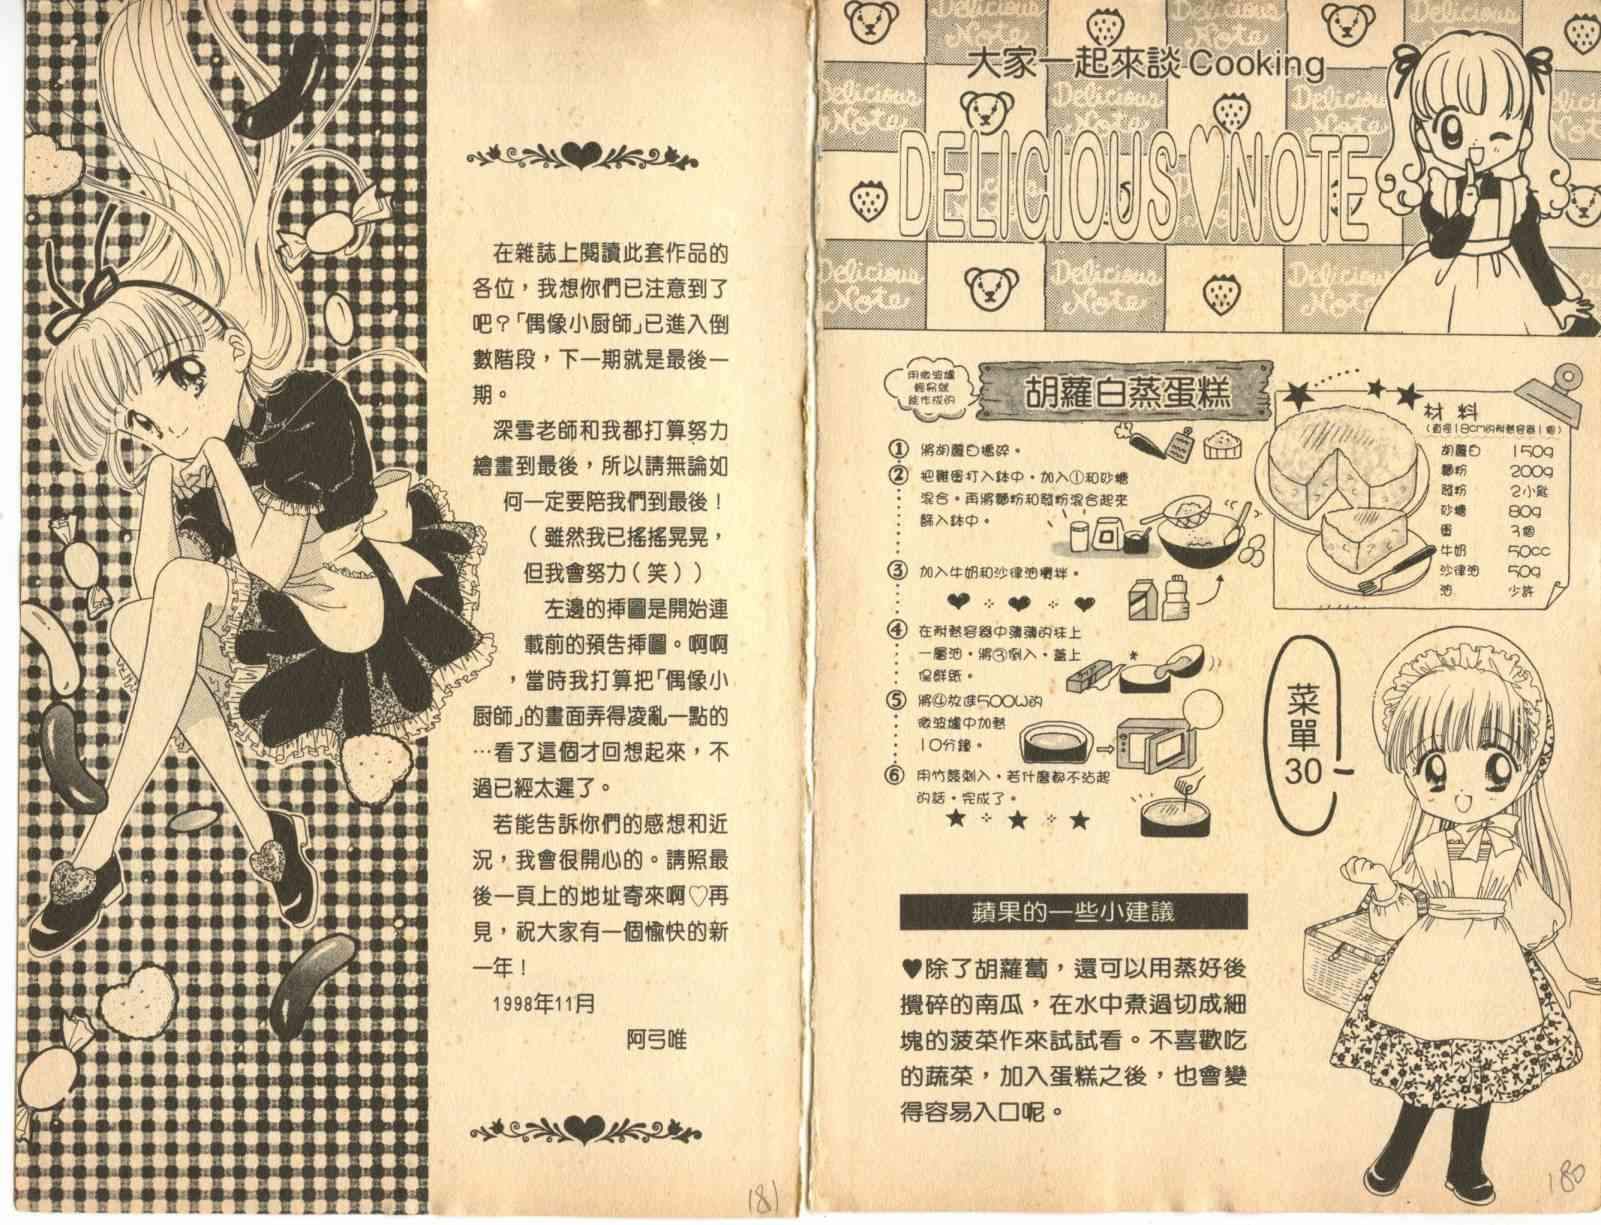 大家一起來談Cooking
DELICIOUS♡NOTE
Delicious
Note
用微波爐
輕易就
能作成的
胡蘿白蒸蛋糕
① 將胡蘿白搗碎。
② 把雞蛋打入鉢中，加入①和砂糖
混合。再將麵粉和發粉混合起來
篩入鉢中。
③ 加入牛奶和沙律油攪拌。
④ 在耐熱容器中薄薄的抹上
一層油，將③倒入，蓋上
保鮮紙。
⑤ 將④放進500W的
微波爐中加熱
10分鐘。
⑥ 用竹籤刺入，若什麼都不沾起
的話，完成了。
材料
(直徑18cm的耐熱容器1個)
胡蘿白 150g
麵粉 200g
發粉 2小匙
砂糖 80g
蛋 3個
牛奶 50cc
沙律油 50g
油 少許
菜單
30
蘋果的一些小建議
♥除了胡蘿蔔，還可以用蒸好後
攪碎的南瓜，在水中煮過切成細
塊的菠菜作來試試看。不喜歡吃
的蔬菜，加入蛋糕之後，也會變
得容易入口呢。
180
在雜誌上閱讀此套作品的
各位，我想你們已注意到了
吧？「偶像小厨師」已進入倒
數階段，下一期就是最後一
期。
深雪老師和我都打算努力
繪畫到最後，所以請無論如
何一定要陪我們到最後！
（雖然我已搖搖晃晃，
但我會努力（笑））
左邊的揷圖是開始連
載前的預告揷圖。啊啊
，當時我打算把「偶像小
厨師」的畫面弄得凌亂一點的
…看了這個才回想起來，不
過已經太遲了。
若能告訴你們的感想和近
況，我會很開心的。請照最
後一頁上的地址寄來啊♡再
見，祝大家有一個愉快的新
一年！
1998年11月
阿弓唯
181